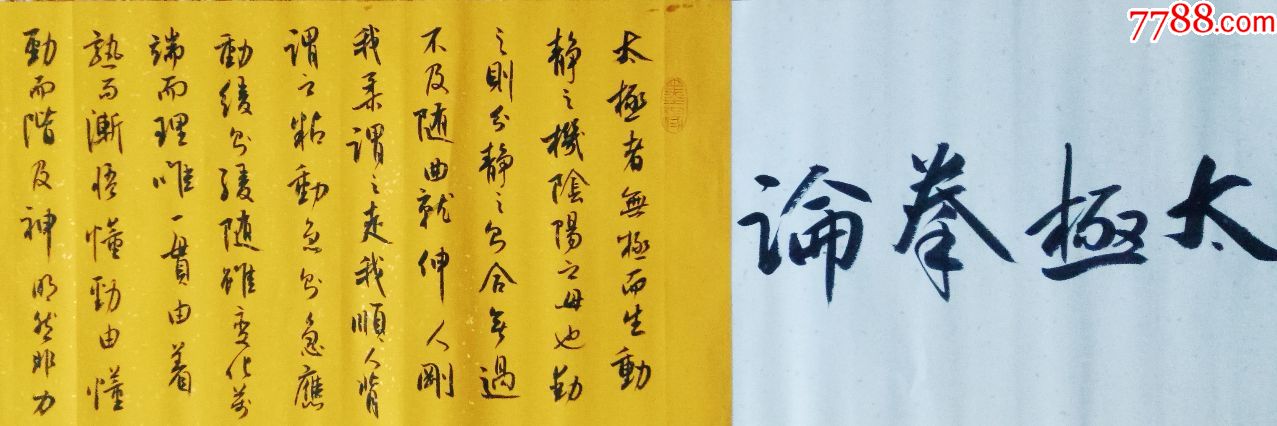 7788.com
太極拳論
太極者無極而生動
静之機陰陽之母也動
之則分静之則合無過
不及随曲就伸人剛
我柔謂之走我順人背
謂之粘動急則急應
動緩則緩随雖变化萬
端而理唯一貫由着
熟而漸悟懂勁由懂
勁而階及神明然非力